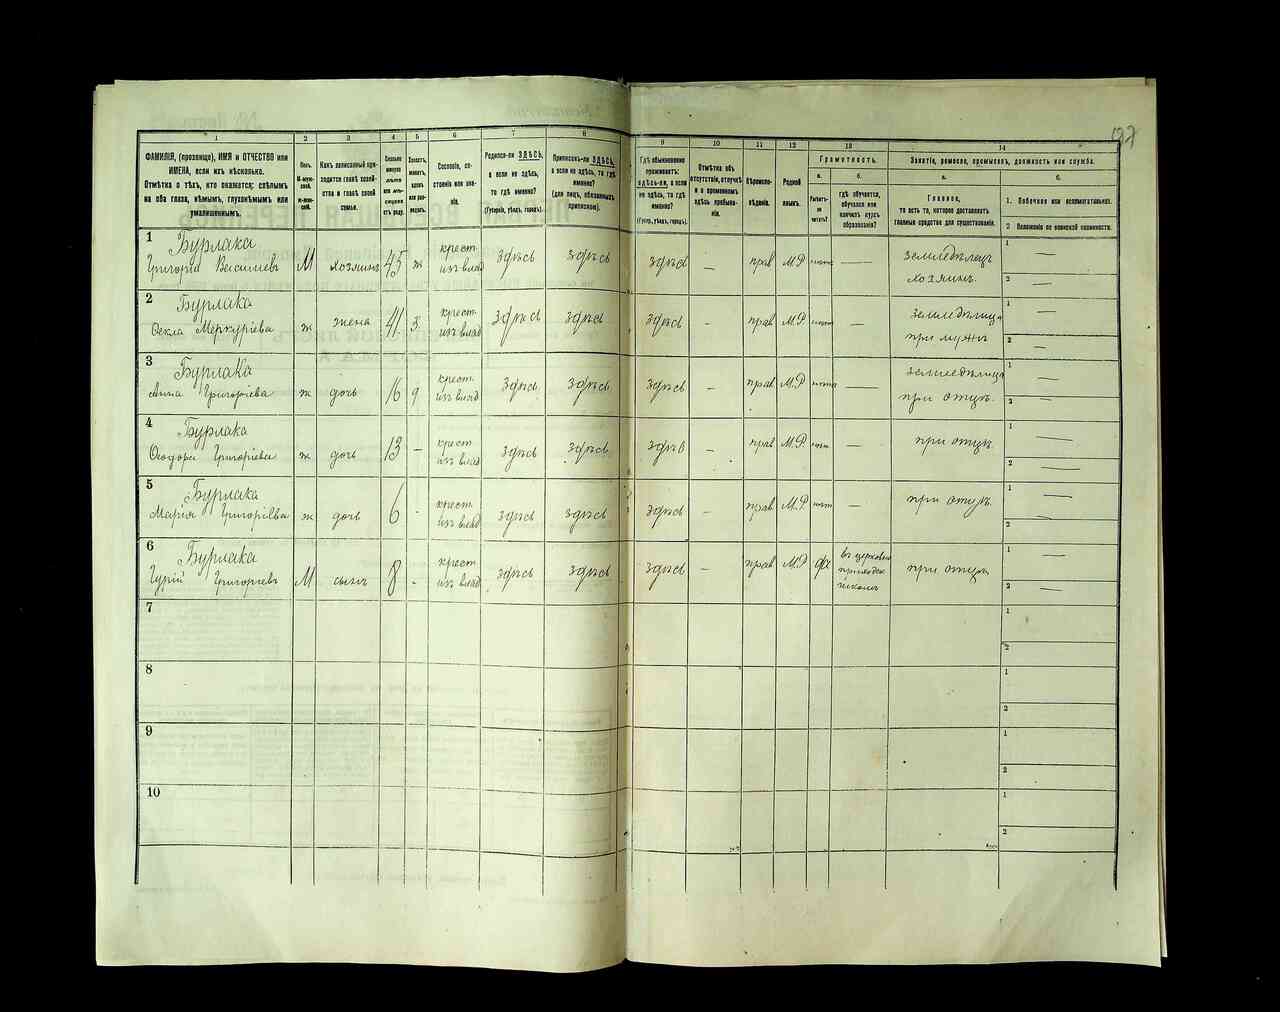 97
1 2 3 4 5 6 7 8 9 10 11 12 13 14
ФАМИЛІЯ, (прозвище), ИМЯ и ОТЧЕСТВО или
ИМЕНА, если ихъ нѣсколько.
Отмѣтка о тѣхъ, кто окажется: слѣпымъ
на оба глаза, нѣмымъ, глухонѣмымъ или
умалишеннымъ.
Полъ.
М-муж-
ской.
Ж-жен-
скій.
Какъ записанный при-
ходится главѣ хозяй-
ства и главѣ своей
семьи.
Сколько
минуло
лѣтъ
или мѣ-
сяцевъ
отъ роду.
Холостъ,
женатъ,
вдовъ
или раз-
веденъ.
Сословіе, со-
стояніе или зва-
ніе.
Родился-ли ЗДѢСЬ,
а если не здѣсь,
то гдѣ именно?
(Губернія, уѣздъ, городъ).
Приписанъ-ли ЗДѢСЬ,
а если не здѣсь, то гдѣ
именно?
(для лицъ, обязанныхъ
припискою).
Гдѣ обыкновенно
проживаетъ:
здѣсь-ли, а если
не здѣсь, то гдѣ
именно?
(Губ., уѣздъ, городъ).
Отмѣтка объ
отсутствіи, отлучкѣ
и о временномъ
здѣсь пребыва-
ніи.
Вѣроиспо-
вѣданіе.
Родной
языкъ.
Грамотность.
а.
Умѣетъ-
ли
читать?
б.
гдѣ обучается,
обучался или
кончилъ курсъ
образованія?
Занятіе, ремесло, промыселъ, должность или служба.
а.
Главное,
то есть то, которое доставляетъ
главныя средства для существованія.
б.
1. Побочное или вспомогательное.
2. Положеніе по воинской повинности.
1 Бурлака
Григорій Василиевъ М хозяинъ 45 ж крест. изъ влад здѣсь здѣсь здѣсь – прав М.Р нѣтъ — земледѣлецъ хозяинъ. 1 — 2 —
2 Бурлака
Фекла Меркуріева ж жена 41. з. крест. изъ влад здѣсь здѣсь здѣсь – прав М.Р. нѣтъ — земледѣлица при мужѣ 1 — 2 —
3 Бурлака
Анна Григоріева ж дочь 16 д крест. изъ влад здѣсь здѣсь здѣсь – прав М.Р нѣтъ — земледѣлица при отцѣ. 1 — 2 —
4 Бурлака
Ѳеодора Григоріева ж дочь 13 – крест изъ влад здѣсь здѣсь здѣсь – прав М.Р. нѣтъ — при отцѣ 1 — 2 —
5 Бурлака
Марія Григоріева ж дочь 6 - крест. изъ влад здѣсь здѣсь здѣсь – прав М.Р. нѣтъ — при отцѣ. 1 — 2
6 Бурлака
Гурій Григориевъ М сынъ 8 - крест изъ влад здѣсь здѣсь здѣсь – прав М.Р въ церковно приходск школѣ при отцѣ 1 — 2 —
7 1 2
8 1 2
9 1 2
10 1 2